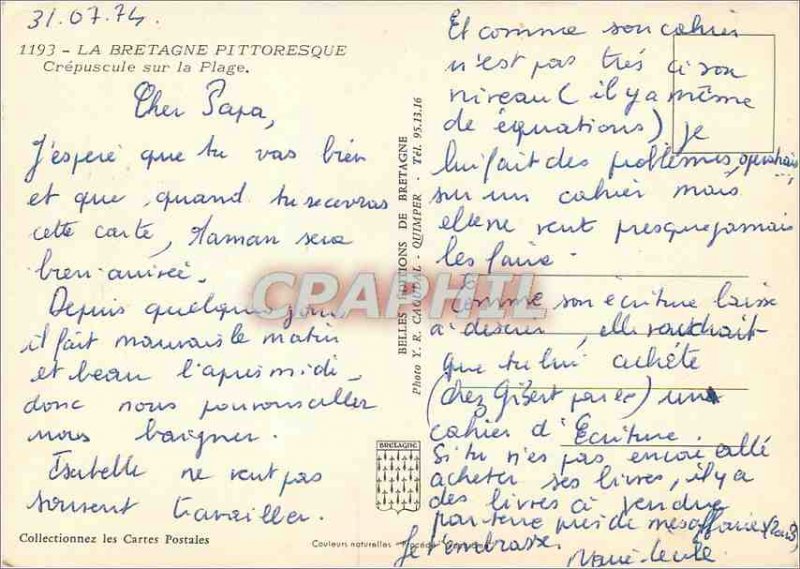 31.07.74
1193 - LA BRETAGNE PITTORESQUE
Crépuscule sur la Plage.
Cher Papa,
J'espère que tu vas bien
et que, quand tu recevras
cette carte, Maman sera
bien arrivée.
Depuis quelques jours
il fait mauvais le matin
et beau l'après midi,
donc nous pouvons aller
nous baigner.
Isabelle ne veut pas
souvent travailler.
Collectionnez les Cartes Postales
BELLES EDITIONS DE BRETAGNE
Photo Y. R. CAOUDAL - QUIMPER - Tél. 95.13.16
BRETAGNE
Couleurs naturelles
CPRAPHIL
Et comme son cahier
n'est pas très à son
niveau (il y a même
de équations) je
lui fait des problèmes, opérations
sur un cahier mais
elle ne veut presque jamais
les faire.
Comme son écriture laisse
à désirer, elle voudrait
que tu lui achète
(chez Gibert par ex) un
cahier d'Ecriture.
Si tu n'es pas encore allé
acheter ses livres, il y a
des livres à vendre
par terre près de mes affaires
Je t'embrasse.